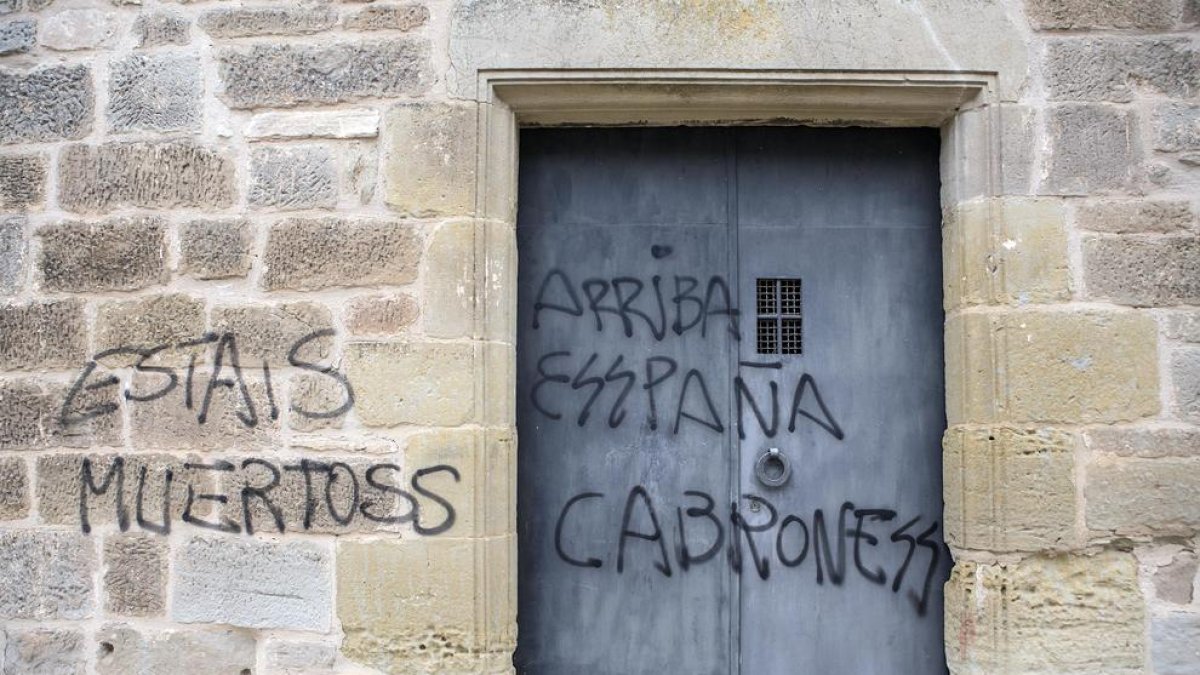 ESTAIS
MUERTOSS
ARRiBA
ESSPAÑA
CABRONESS